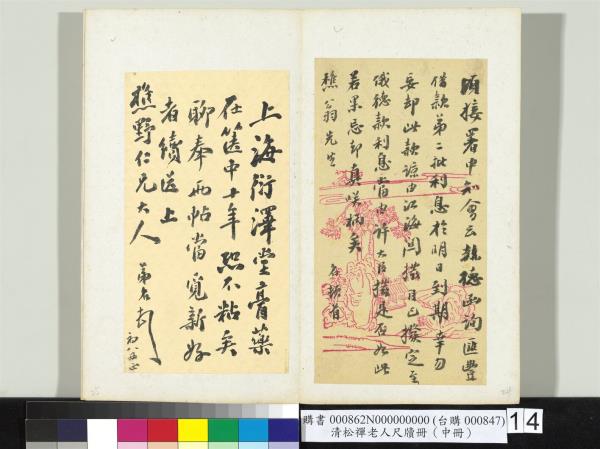 頃接署中知會云赫德函詢匯豐
借款第二批利息於明日到期幸勿
妥却此款諒由江海關撥目已撥定至
俄德款利息當由許大臣撥是否如此
若果忘却真咲柄矣
樵翁先生
上海衍澤堂膏藥
在篋中十年恐不粘矣
聊奉兩帖當覓新好
者續送上
樵野仁兄大人
初八
購書 000862N000000000 (台購 000847)
清松禪老人尺牘冊（中冊）
14